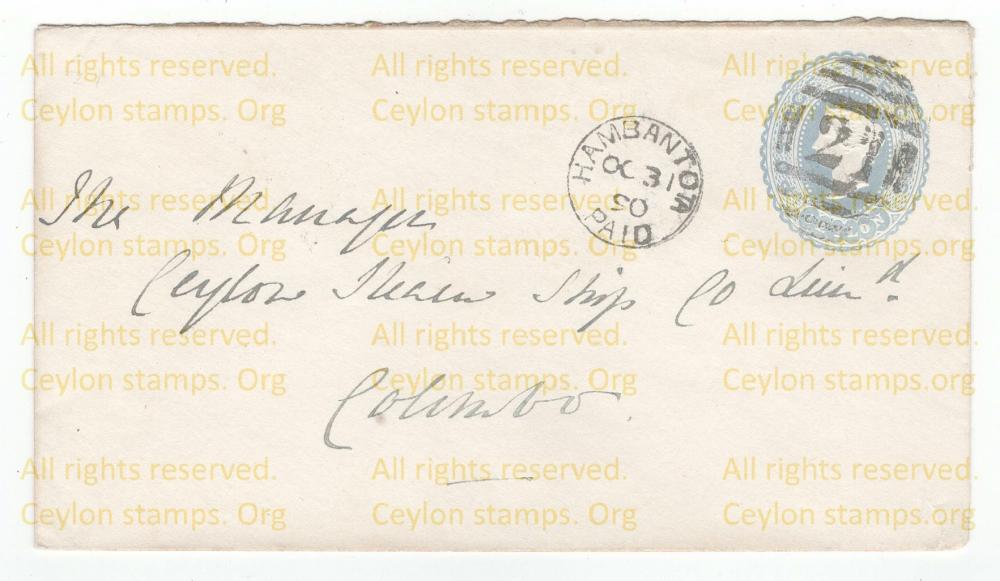 All rights reserved. All rights reserved. All rights reserved.
Ceylon stamps. Org Ceylon stamps. Org Ceylon stamps.org
HAMBANTOTA
OC 31
90
PAID
2
The Manager
All rights reserved. All rights reserved. All rights reserved.
Ceylon stamps. Org Ceylon stamps. Org Ceylon stamps.org
Ceylon Steam Ship Co Limd.
All rights reserved. All rights reserved. All rights reserved.
Ceylon stamps. Org Ceylon stamps. Org Ceylon stamps.org
Colombo.
All rights reserved. All rights reserved. All rights reserved.
Ceylon stamps. Org Ceylon stamps. Org Ceylon stamps.org